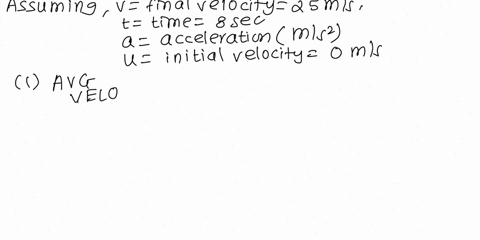 Assuming, v= final velocity= 25 m/s,
t= time= 8 sec
a= acceleration (m/s²)
u= initial velocity= 0 m/s
(i) AVG
VELO